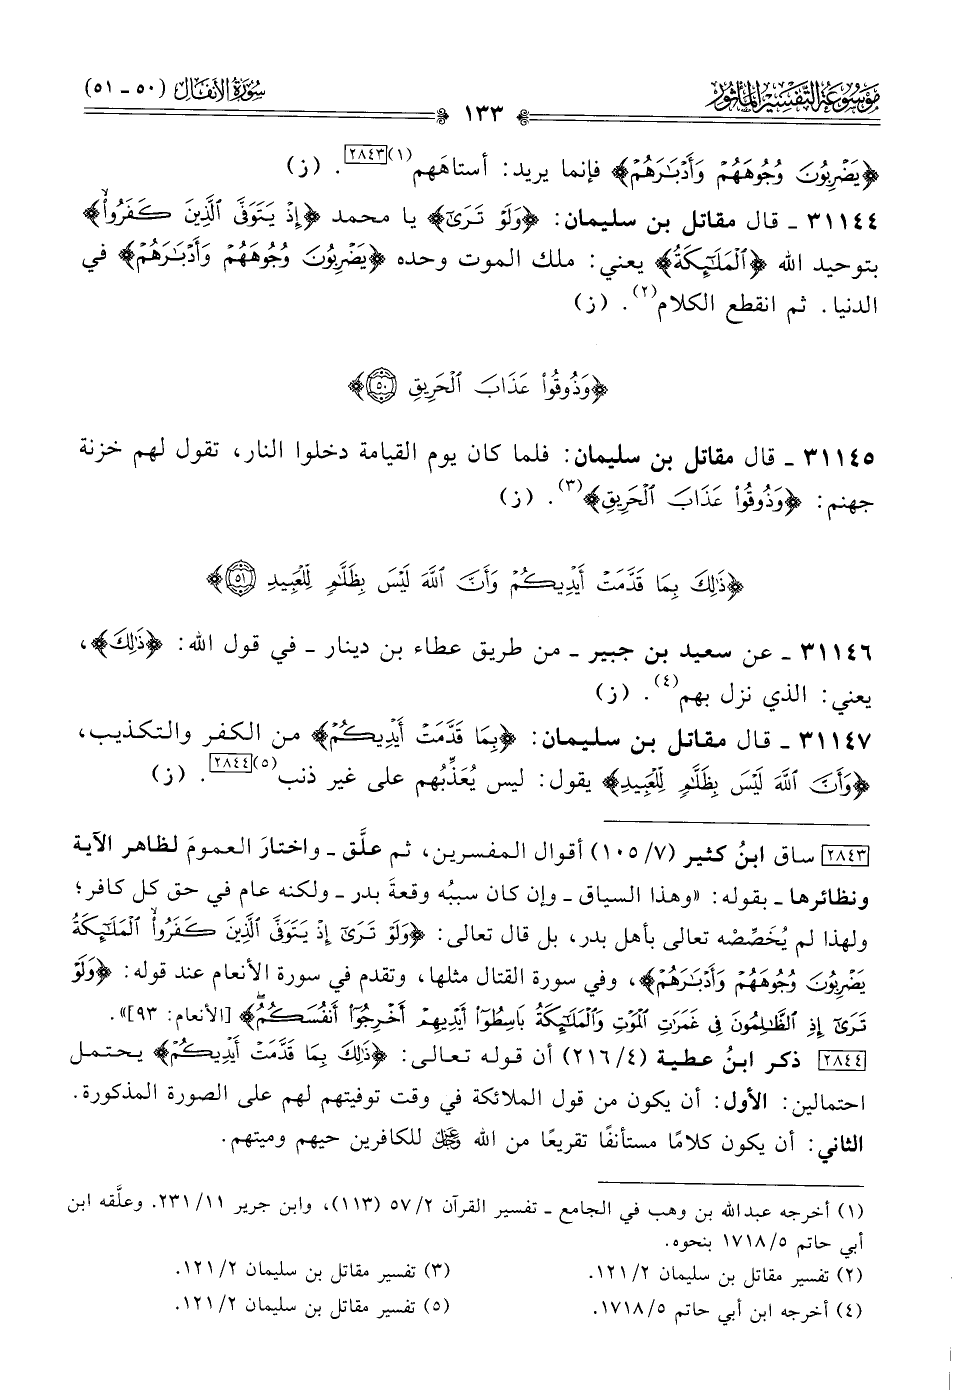 موسوعة التفسير المأثور
سورة الأنفال (٥٠ - ٥١)
١٣٣
﴿يَضْرِبُونَ وُجُوهَهُمْ وَأَدْبَٰرَهُمْ﴾ فإنما يريد: أستاهَهم(١)[٢٨٤٣]. (ز)
٣١١٤٤ ـ قال مقاتل بن سليمان: ﴿وَلَوْ تَرَىٰٓ﴾ يا محمد ﴿إِذْ يَتَوَفَّى ٱلَّذِينَ كَفَرُوا۟ۙ﴾
بتوحيد الله ﴿ٱلْمَلَٰٓئِكَةُ﴾ يعني: ملك الموت وحده ﴿يَضْرِبُونَ وُجُوهَهُمْ وَأَدْبَٰرَهُمْ﴾ في
الدنيا. ثم انقطع الكلام(٢). (ز)
﴿وَذُوقُوا۟ عَذَابَ ٱلْحَرِيقِ ٥٠﴾
٣١١٤٥ ـ قال مقاتل بن سليمان: فلما كان يوم القيامة دخلوا النار، تقول لهم خزنة
جهنم: ﴿وَذُوقُوا۟ عَذَابَ ٱلْحَرِيقِ﴾(٣). (ز)
﴿ذَٰلِكَ بِمَا قَدَّمَتْ أَيْدِيكُمْ وَأَنَّ ٱللَّهَ لَيْسَ بِظَلَّٰمٍ لِّلْعَبِيدِ ٥١﴾
٣١١٤٦ ـ عن سعيد بن جبير ـ من طريق عطاء بن دينار ـ في قول الله: ﴿ذَٰلِكَ﴾،
يعني: الذي نزل بهم(٤). (ز)
٣١١٤٧ ـ قال مقاتل بن سليمان: ﴿بِمَا قَدَّمَتْ أَيْدِيكُمْ﴾ من الكفر والتكذيب،
﴿وَأَنَّ ٱللَّهَ لَيْسَ بِظَلَّٰمٍ لِّلْعَبِيدِ﴾ يقول: ليس يُعَذِّبُهم على غير ذنب(٥)[٢٨٤٤]. (ز)
[٢٨٤٣] ساق ابنُ كثير (٧/ ١٠٥) أقوال المفسرين، ثم علَّق ـ واختارَ العمومَ لظاهر الآية
ونظائرها ـ بقوله: «وهذا السياق ـ وإن كان سببُه وقعةَ بدر ـ ولكنه عام في حق كل كافر؛
ولهذا لم يُخَصِّصْه تعالى بأهل بدر، بل قال تعالى: ﴿وَلَوْ تَرَىٰٓ إِذْ يَتَوَفَّى ٱلَّذِينَ كَفَرُوا۟ۙ ٱلْمَلَٰٓئِكَةُ
يَضْرِبُونَ وُجُوهَهُمْ وَأَدْبَٰرَهُمْ﴾، وفي سورة القتال مثلها، وتقدم في سورة الأنعام عند قوله: ﴿وَلَوْ
تَرَىٰٓ إِذِ ٱلظَّٰلِمُونَ فِى غَمَرَٰتِ ٱلْمَوْتِ وَٱلْمَلَٰٓئِكَةُ بَاسِطُوٓا۟ أَيْدِيهِمْ أَخْرِجُوٓا۟ أَنفُسَكُمُۖ﴾ [الأنعام: ٩٣]».
[٢٨٤٤] ذكر ابنُ عطية (٤/ ٢١٦) أن قوله تعالى: ﴿ذَٰلِكَ بِمَا قَدَّمَتْ أَيْدِيكُمْ﴾ يحتمل
احتمالين: الأول: أن يكون من قول الملائكة في وقت توفيتهم لهم على الصورة المذكورة.
الثاني: أن يكون كلامًا مستأنفًا تقريعًا من الله ﷿ للكافرين حيهم وميتهم.
(١) أخرجه عبدالله بن وهب في الجامع ـ تفسير القرآن ٢/ ٥٧ (١١٣)، وابن جرير ١١/ ٢٣١. وعلَّقه ابن
أبي حاتم ٥/ ١٧١٨ بنحوه.
(٢) تفسير مقاتل بن سليمان ٢/ ١٢١.
(٣) تفسير مقاتل بن سليمان ٢/ ١٢١.
(٤) أخرجه ابن أبي حاتم ٥/ ١٧١٨.
(٥) تفسير مقاتل بن سليمان ٢/ ١٢١.